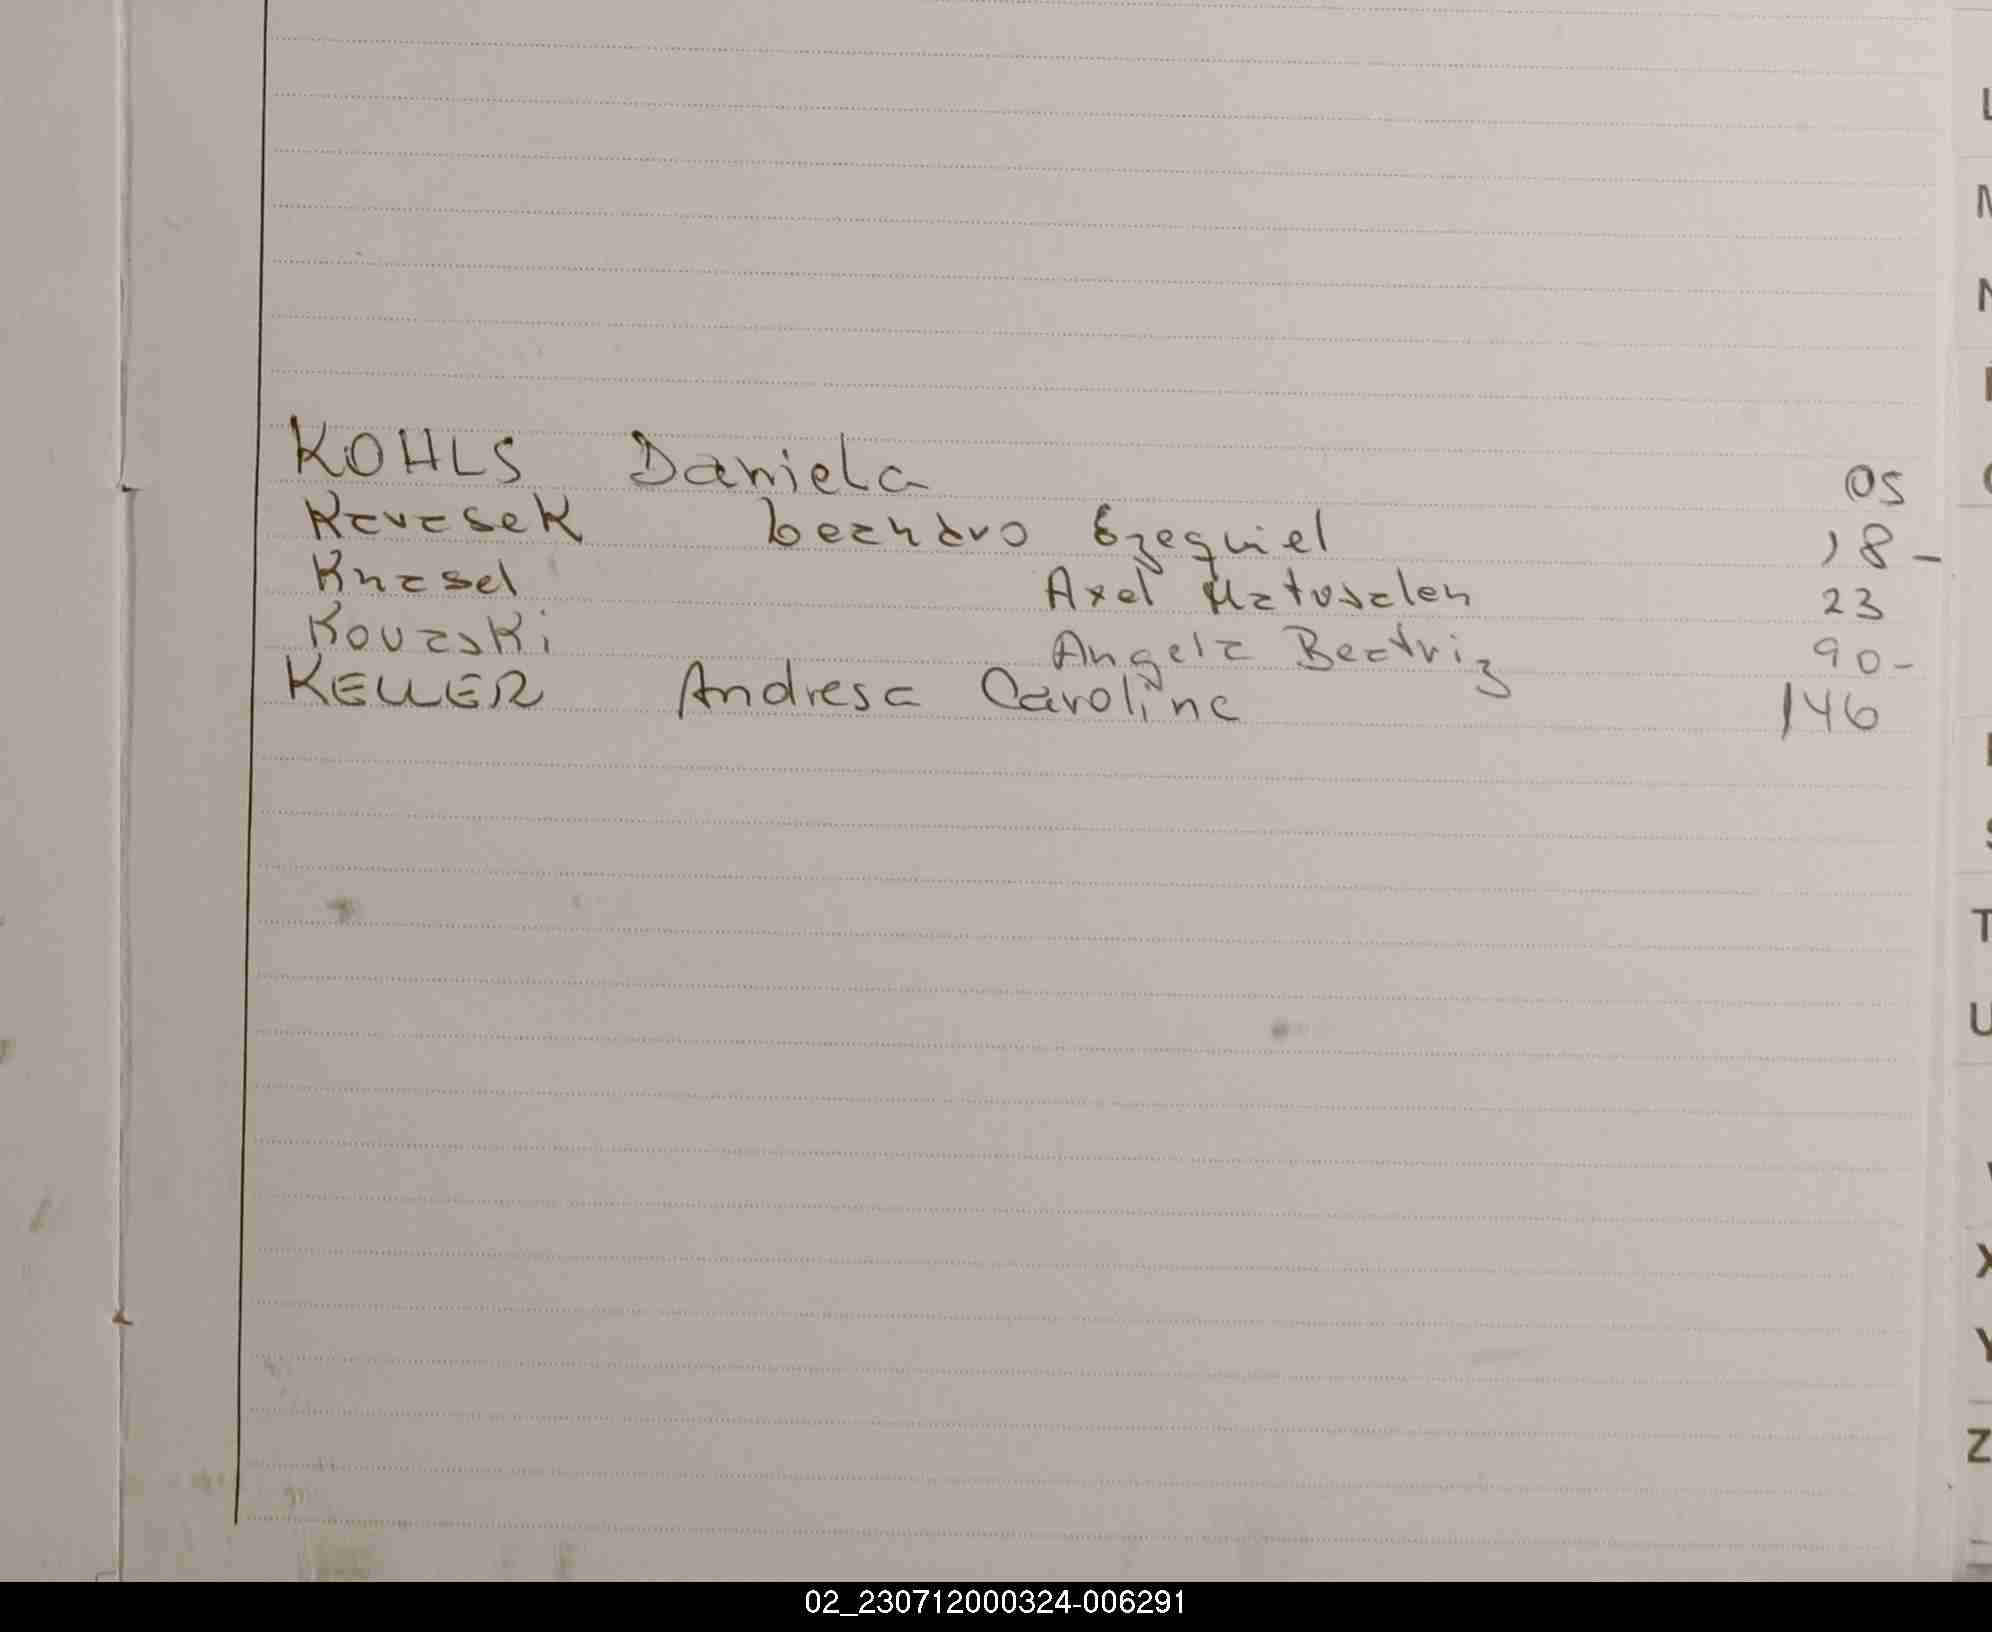 KOHLS Daniela 05
Karasek Leandro Ezequiel 18 -
Knasel Axel Matusalen 23
Kovaski Angela Beatriz 90 -
KELLER Andresa Caroline 146
L
M
N
T
U
X
Y
Z
02_230712000324-006291